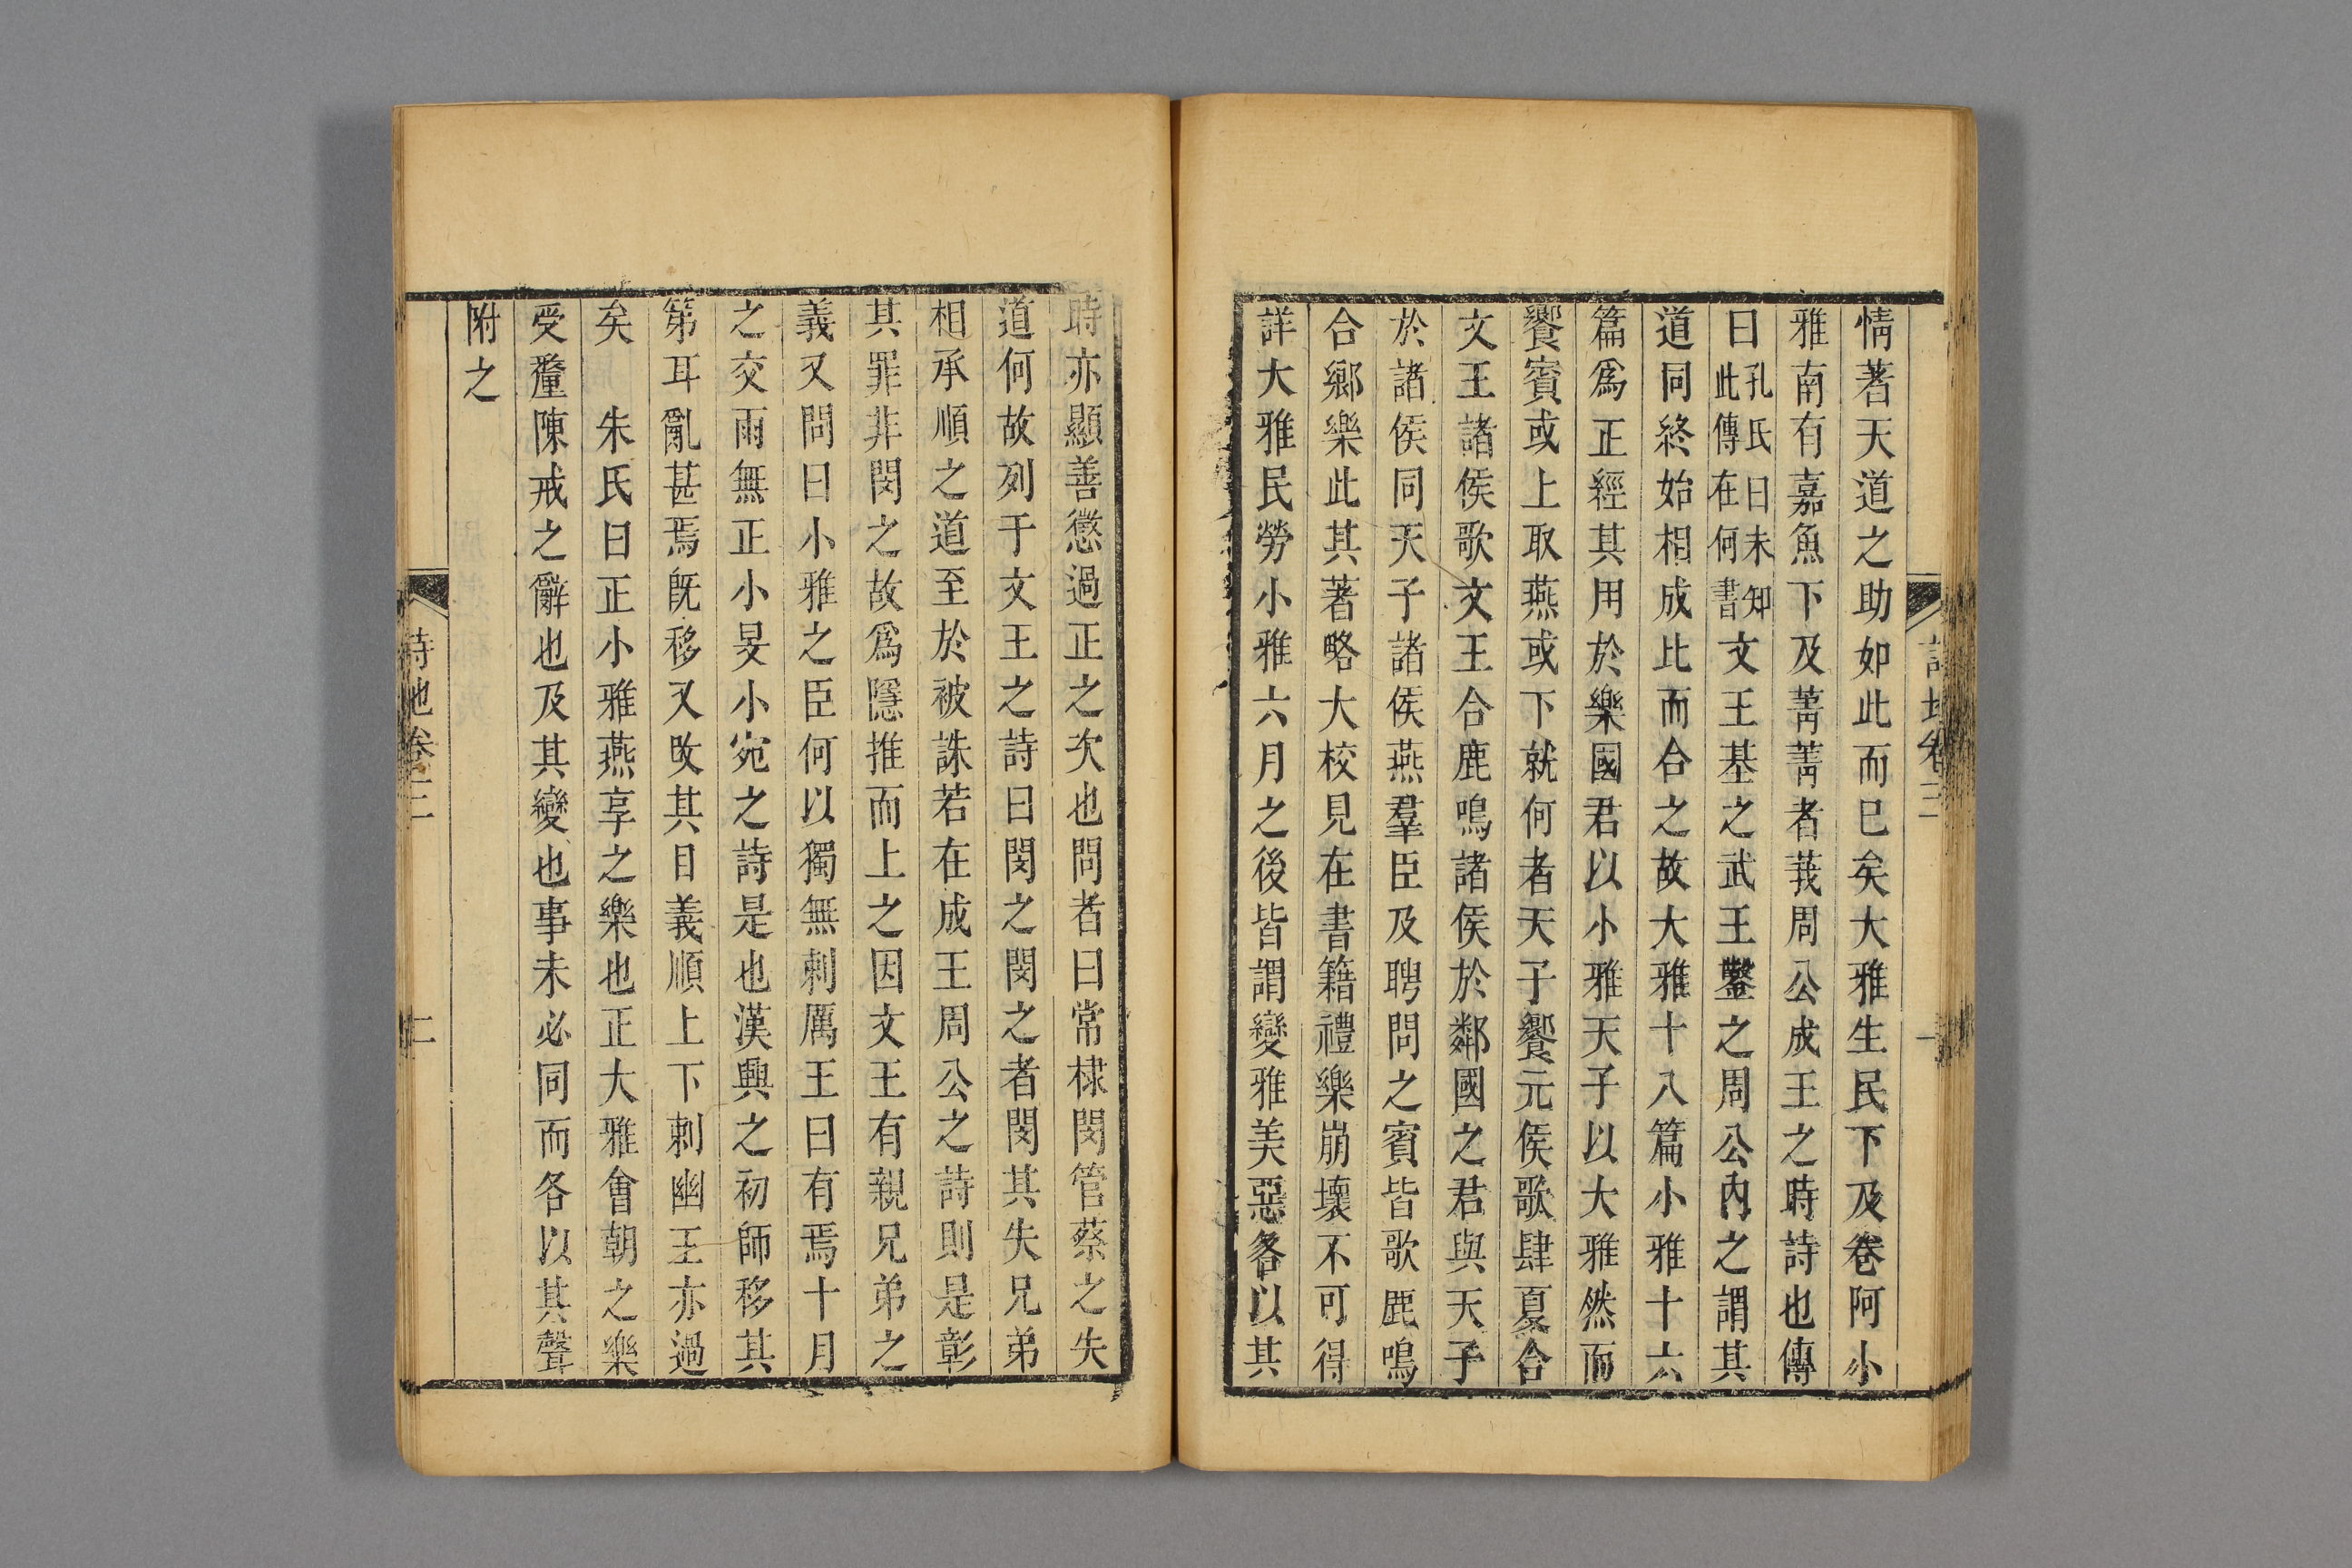 情著天道之助如此而已矣大雅生民下及卷阿小
雅南有嘉魚下及菁菁者莪周公成王之時詩也傳
曰孔氏曰未知此傳在何書文王基之武王鑿之周公內之謂其
道同終始相成比而合之故大雅十八篇小雅十六
篇爲正經其用於樂國君以小雅天子以大雅然而
饗賓或上取燕或下就何者天子饗元侯歌肆夏合
文王諸侯歌文王合鹿鳴諸侯於鄰國之君與天子
於諸侯同天子諸侯燕羣臣及聘問之賓皆歌鹿鳴
合鄉樂此其著略大校見在書籍禮樂崩壞不可得
詳大雅民勞小雅六月之後皆謂變雅美惡各以其
詩地卷三
一
時亦顯善懲過正之次也問者曰常棣閔管蔡之失
道何故列于文王之詩曰閔之閔之者閔其失兄弟
相承順之道至於被誅若在成王周公之詩則是彰
其罪非閔之故爲隱推而上之因文王有親兄弟之
義又問曰小雅之臣何以獨無刺厲王曰有焉十月
之交雨無正小旻小宛之詩是也漢興之初師移其
第耳亂甚焉既移又改其目義順上下刺幽王亦過
矣　朱氏曰正小雅燕享之樂也正大雅會朝之樂
受釐陳戒之辭也及其變也事未必同而各以其聲
附之
詩地卷三
二